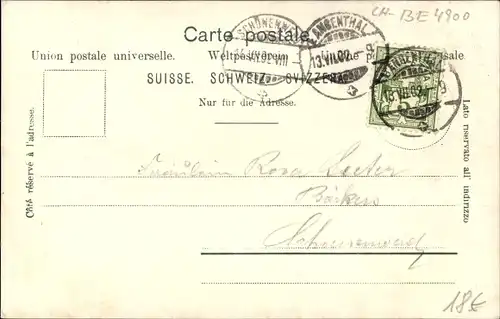 CH-BE 4900
Carte postale.
Union postale universelle. Weltpostverein
SUISSE. SCHWEIZ. SVIZZERA.
Nur für die Adresse.
Côté réservé à l'adresse.
Lato riservato all' indirizzo
LANGENTHAL
13.VII.02.
LANGENTHAL
13.VII.02. 9
Fräulein Rosa
Bäckers
Schoenenwerd
18€